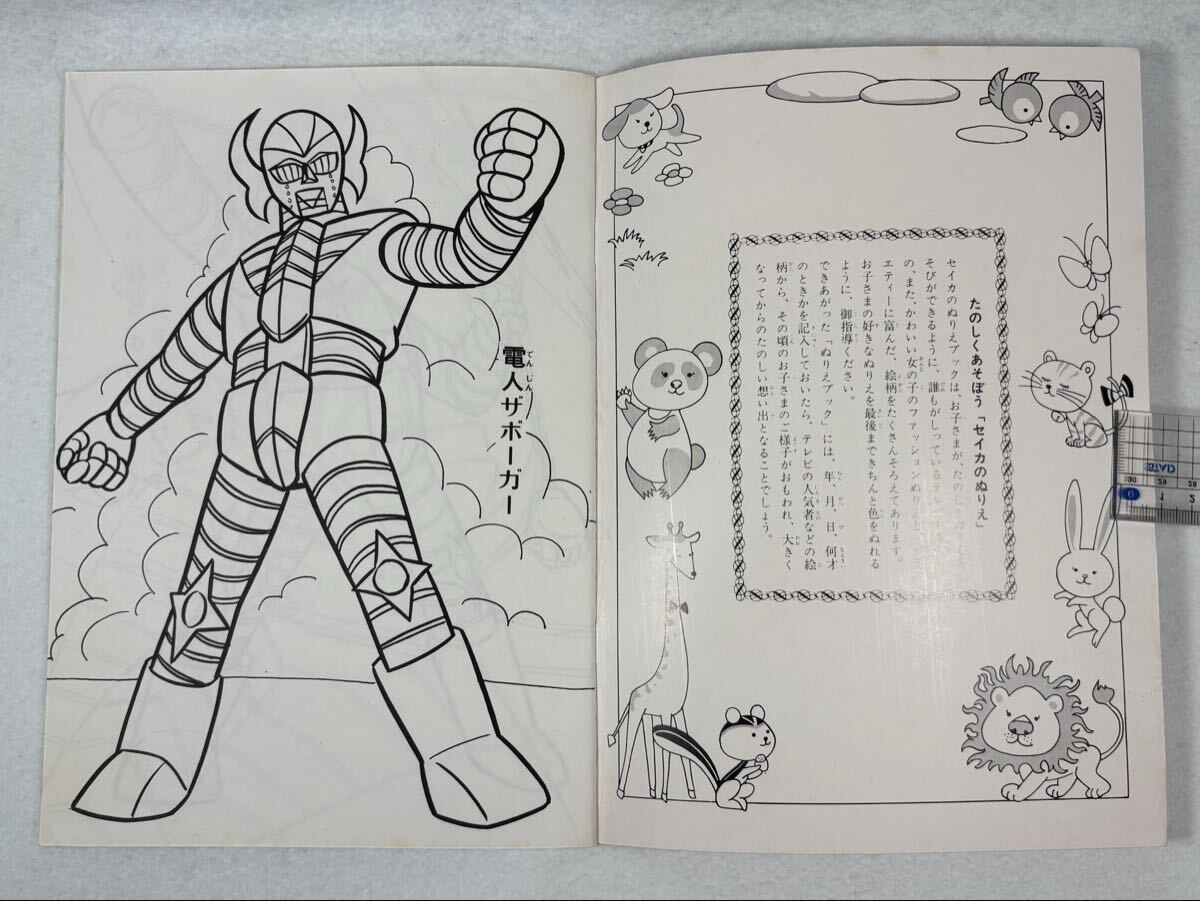 たのしくあそぼう「セイカのぬりえ」
セイカのぬりえブックは、お子さまが、たの
そびができるように、誰もがしっているテレ
の、また、かわいい女の子のファッションぬりえ
エティーに富んだ、絵柄をたくさんそろえてあります。
お子さまの好きなぬりえを最後まできちんと色をぬれる
ように、御指導ください。
できあがった「ぬりえブック」には、年、月、日、何才
のときかを記入しておいたら、テレビの人気者などの絵
柄から、その頃のお子さまのご様子がおもわれ、大きく
なってからのたのしい想い出となることでしょう。
電人ザボーガー
330 29 28
0 1 2